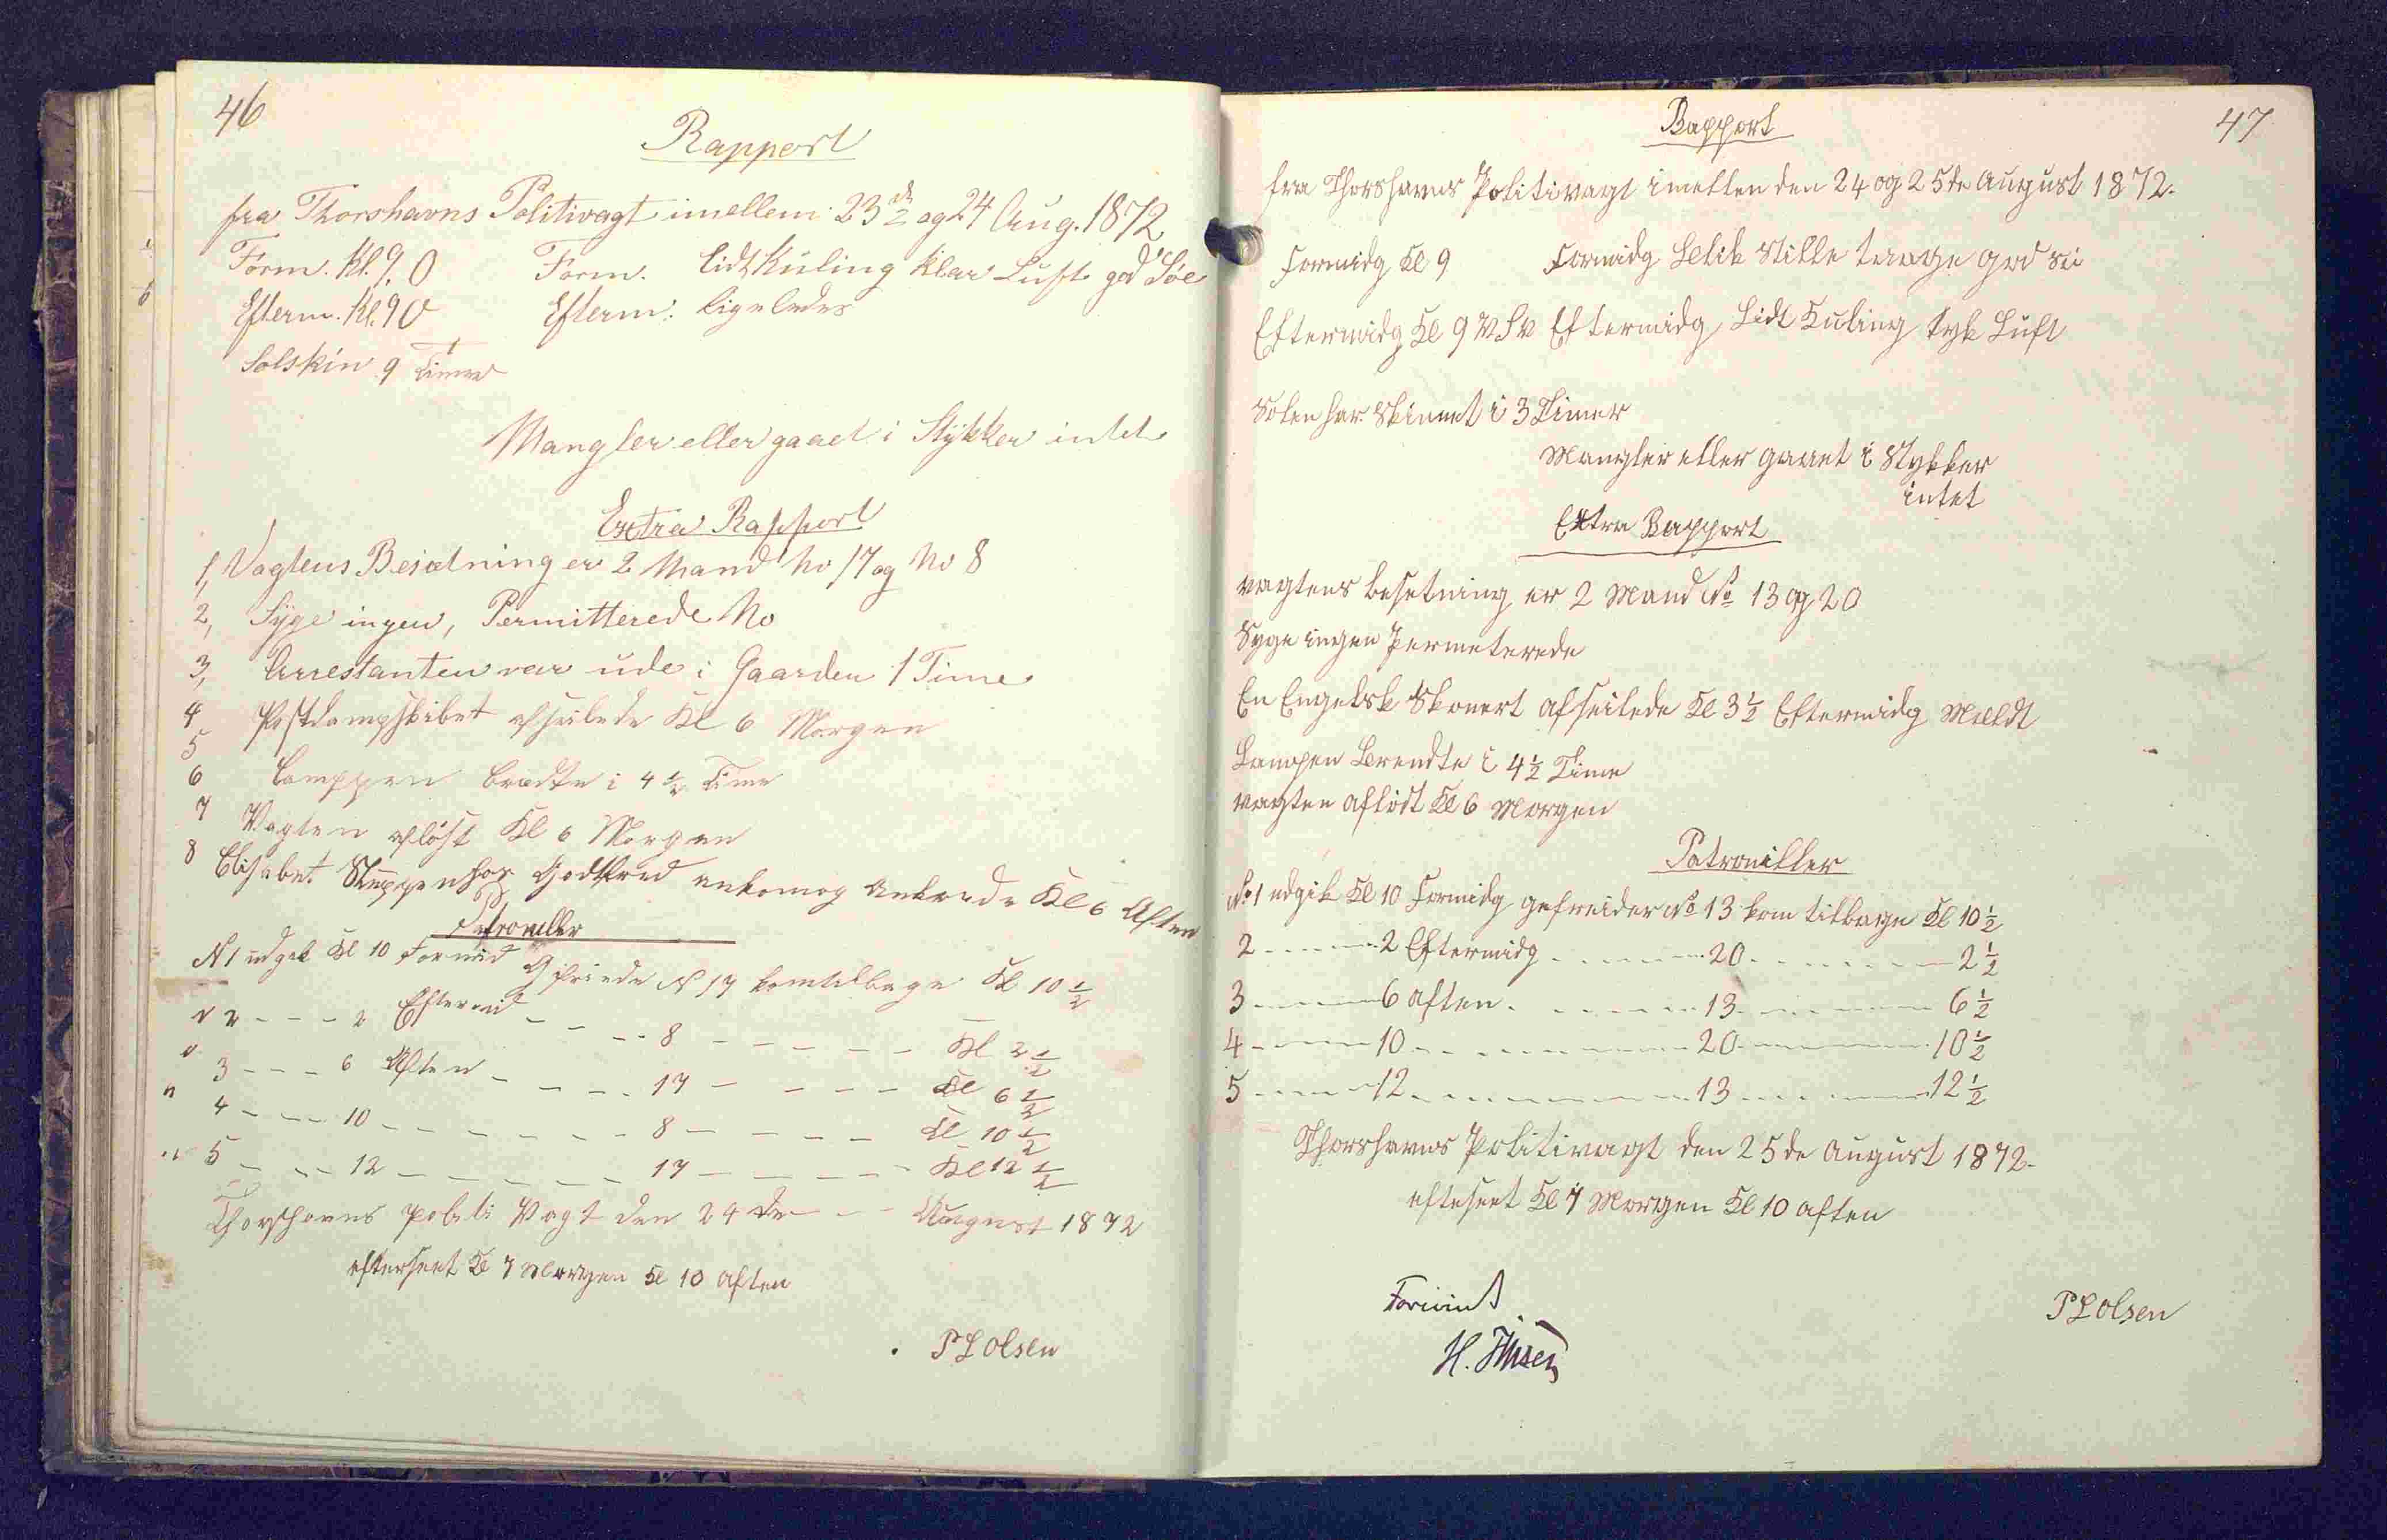 46
Rapport
fra Thorshavns Politivagt imellem 23de og 24 Aug. 1872
Form. Kl. 9. O Form. lidt Kuling klar Luft god Søe
Efterm. Kl. 9 O Efterm: ligeledes
Solskin 9 Timer
Mangler eller gaaet i Stykker intet
Extra Rapport
1, Vagtens Besætning er 2 Mand No 17 og No 8
2, Syge ingen, Permitterede No
3, Arrestanten var ude i Gaarden 1 Time
4 Postdampskibet afseilede Kl 6 Morgen
5
6 Lamppen brædte i 4 1/2 Time
7 Vagten afløst Kl 6 Morgen
8 Elisabet Skuppenhos Godtfred ankom og Ankrede Kl 6 Aften
Patroviller
N 1 udgik Kl 10 Formid Gefriede N 17 kom tilbage Kl 10 1/2
" 2 - - - 2 Eftermid - - - 8 - - - - - Kl 2 1/2
" 3 - - - 6 Aften - - - - 17 - - - - Kl 6 1/2
" 4 - - - 10 - - - - - - - 8 - - - - Kl 10 1/2
" 5 - - - 12 - - - - - - 17 - - - - Kl 12 1/2
Thorshavns Politi Vagt den 24 de - - August 1872
efterseet Kl 7 Morgen Kl 10 aften
P L Olsen
47
Rapport
fra Thorshavns Politivagt imellen den 24 og 25de August 1872.
Formidg Kl 9 Formidg Blik Stille taage god sö
Eftermidg Kl 9 V S V Eftermidg Lidt Kuling tyk Luft
Solen har Skinnet i 3 Timer
Mangler eller gaaet i Stykker
intet
Extra Rapport
vagtens besetning er 2 Mand No 13 og 20
Syge ingen Permeterede
En Engelsk Skonert afseilede Kl 3 1/2 Eftermidg Meldt
Lampen Brendte i 4 1/2 Time
vagten aflöst Kl 6 Morgen
Patrouiller
No 1 udgik Kl 10 Formidg gefreider No 13 kom tilbage Kl 10 1/2
2 - - - - 2 Eftermidg - - - - 20 - - - - 2 1/2
3 - - - - 6 aften - - - - 13 - - - - 6 1/2
4 - - - - 10 - - - - 20 - - - - 10 1/2
5 - - - - 12 - - - - 13 - - - - 12 1/2
Thorshavns Politivagt den 25de August 1872.
efteseet Kl 7 Morgen Kl 10 aften
P L Olsen
H.